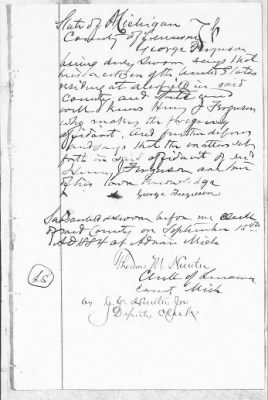 State of Michigan
County of Lenawee } ss
George Ferguson
being duly sworn says that
he is a citizen of the United States
residing at in said
County and State and
well knows Henry J Ferguson
who makes the foregoing
affidavit, and further deposes
and says that the matters set
forth in said affidavit of said
Henry J Ferguson are true
of his own knowledge
George Ferguson
Subscribed & sworn before me Clerk
of said County on September 15th
AD 1884 at Adrian Mich
Clerk of Lenawee
County Mich
by Jr
Deputy Clerk